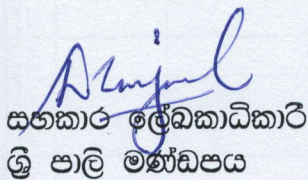 සහකාර ලේඛකාධිකාරී
ශ්‍රී පාලි මණ්ඩපය